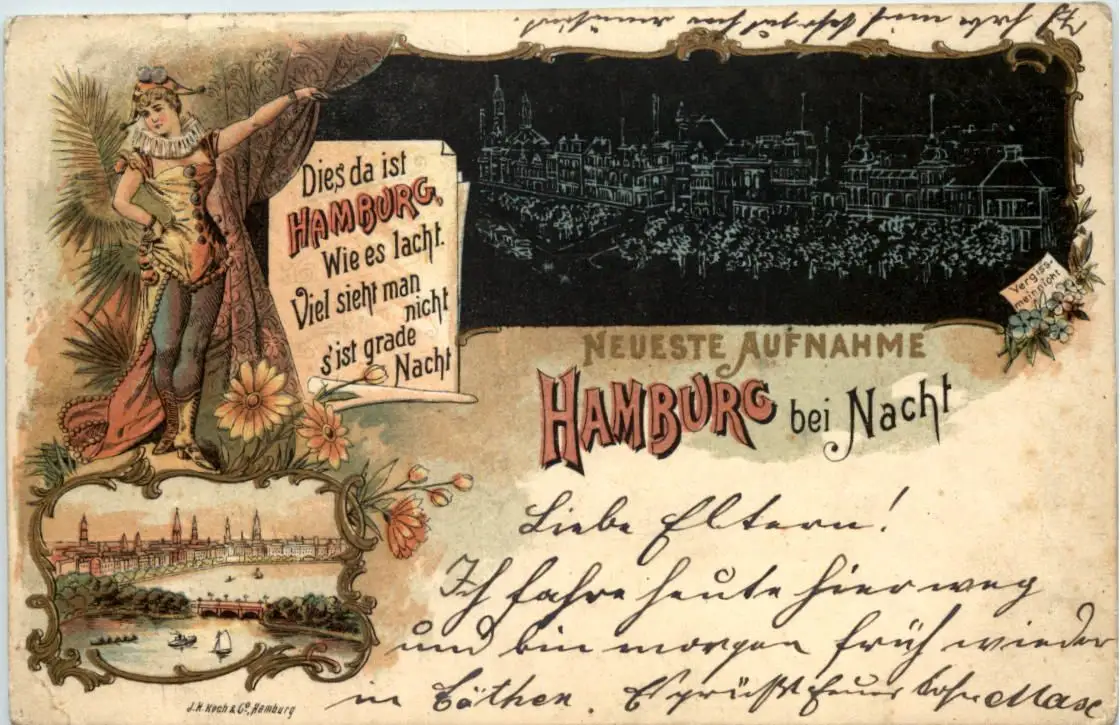 Dies da ist
HAMBURG,
Wie es lacht.
Viel sieht man
nicht
s'ist grade
Nacht
Vergiss
mein nicht
NEUESTE AUFNAHME
HAMBURG bei Nacht
Liebe Eltern!
Ich fahre heute hier weg
und bin morgen früh wieder
in Cöthen. Es grüßt Euer Sohn Max
Ich habe mich sehr gut
J.H. Koch & Co, Hamburg